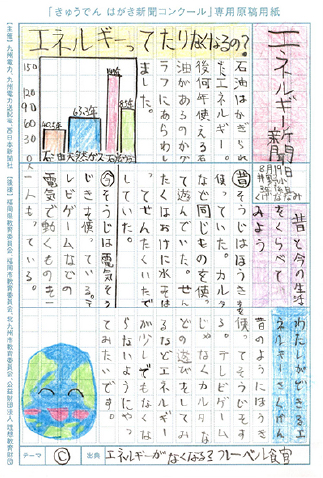 「きゅうでん はがき新聞コンクール」専用原稿用紙
エネルギー新聞
8月19日
エネルギーってたりなくなるの?
石油はかぎられ
たエネルギー。
後何年使える石
油があるのかグ
ラフにあらわし
ました。
150
120
90
60
30
0
石油
天然ガス
石炭
昔と今の生活
をくらべて
みよう
昔そうじはほうきを
使っていた。カルタ
など同じものを使っ
て遊んでいた。せん
たくはおけに水をは
ってせんたくいたで
していた。
今そうじは電気そう
じきを使っている。テ
レビゲームなどの
電気で動くものを一
人もっている。
わたしができるエ
ネルギーさくげん
昔のようにほうき
を使ってそうじをす
る。テレビゲーム
じゃなくカルタな
どの遊びをしてみ
るなどエネルギー
が少しでもなくな
らないようにやっ
てみたいです。
テーマ
C
出典
エネルギーがなくなる? フレーベル食官
【主催】九州電力、九州電力送配電、西日本新聞社
【後援】福岡県教育委員会、福岡市教育委員会、北九州市教育委員会、公益財団法人理想教育財団